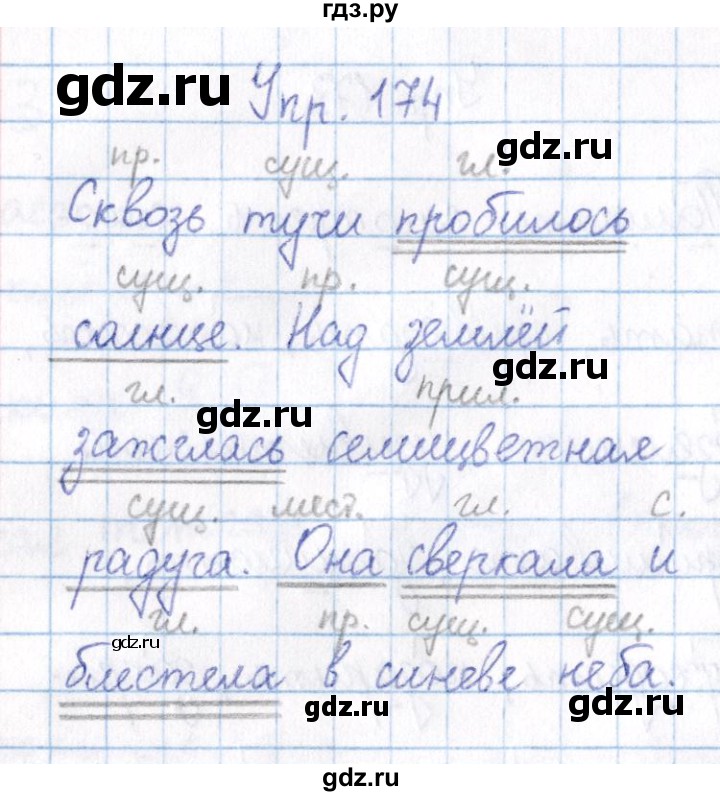 гдз.ру
gdz.ru
Упр. 174
gdz.ru
пр. сущ. гл.
Сквозь тучи пробилось
сущ. пр. сущ.
солнце. Над землёй
gdz.ru
гл. прил.
gdz.ru
зажглась семицветная
сущ. мест. гл. с.
радуга. Она сверкала и
gdz.ru
гл. пр. сущ. сущ.
блестела в синеве неба.
gdz.ru
gdz.ru
gdz.ru